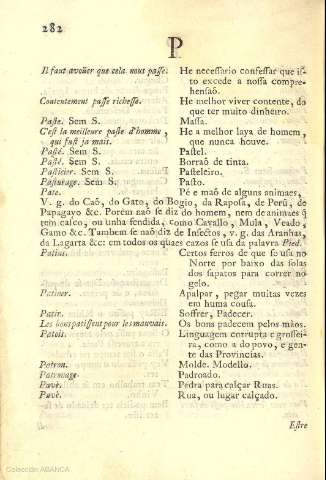 282
P
Il faut avoüer que cela nous passe: He necessario confessar que is-
to excede a nossa compre-
hensaõ.
Contentement passe richesse. He melhor viver contente, do
que ter muito dinheiro.
Paste. Sem S. Massa.
C'est la meilleure paste d'homme, He a melhor laya de homem,
qui fust ja mais. que nunca houve.
Pasté. Sem S. Pastel.
Pasté. Sem S. Borraõ de tinta.
Pasticier. Sem S. Pasteleiro.
Pasturage. Sem S. Pasto.
Pate. Pè e maõ de alguns animaes,
V. g. do Caõ, do Gato, do Bogio, da Raposa, de Porû, de
Papagayo &c. Porém naõ se diz do homem, nem de animaes q̃
tem calco, ou unha fendida, como Cavallo, Mula, Veado,
Gamo &c. Tambem se naõ diz de Insectos, v. g. das Aranhas,
da Lagarta &c: em todos os quaes cazos se usa da palavra Pied.
Patins. Certos ferros de que so usa no
Norte por baixo das solas
dos sapatos para correr no
gelo.
Patiner. Apalpar, pegar muitas vezes
em huma cousa.
Patir. Soffrer, Padecer.
Les bons patissent pour les mauvais. Os bons padecem pelos màos.
Patois. Linguagem corrupta e grossei-
ra, como a do povo, e gen-
te das Provincias.
Patron. Molde. Modello.
Patronage. Padroado.
Pavè. Pedra para calçar Ruas.
Pavè. Rua, ou lugar calçado.
Estre
Colección ABANCA